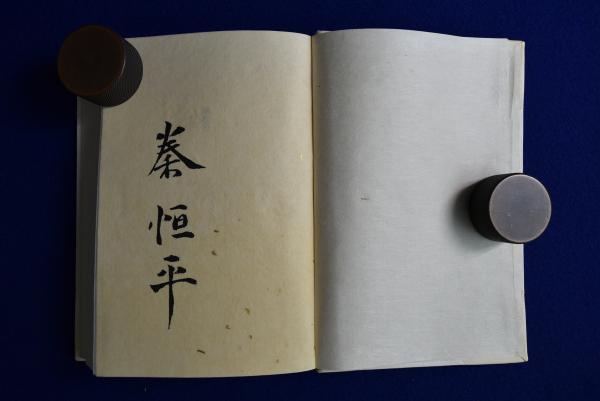 秦恒平